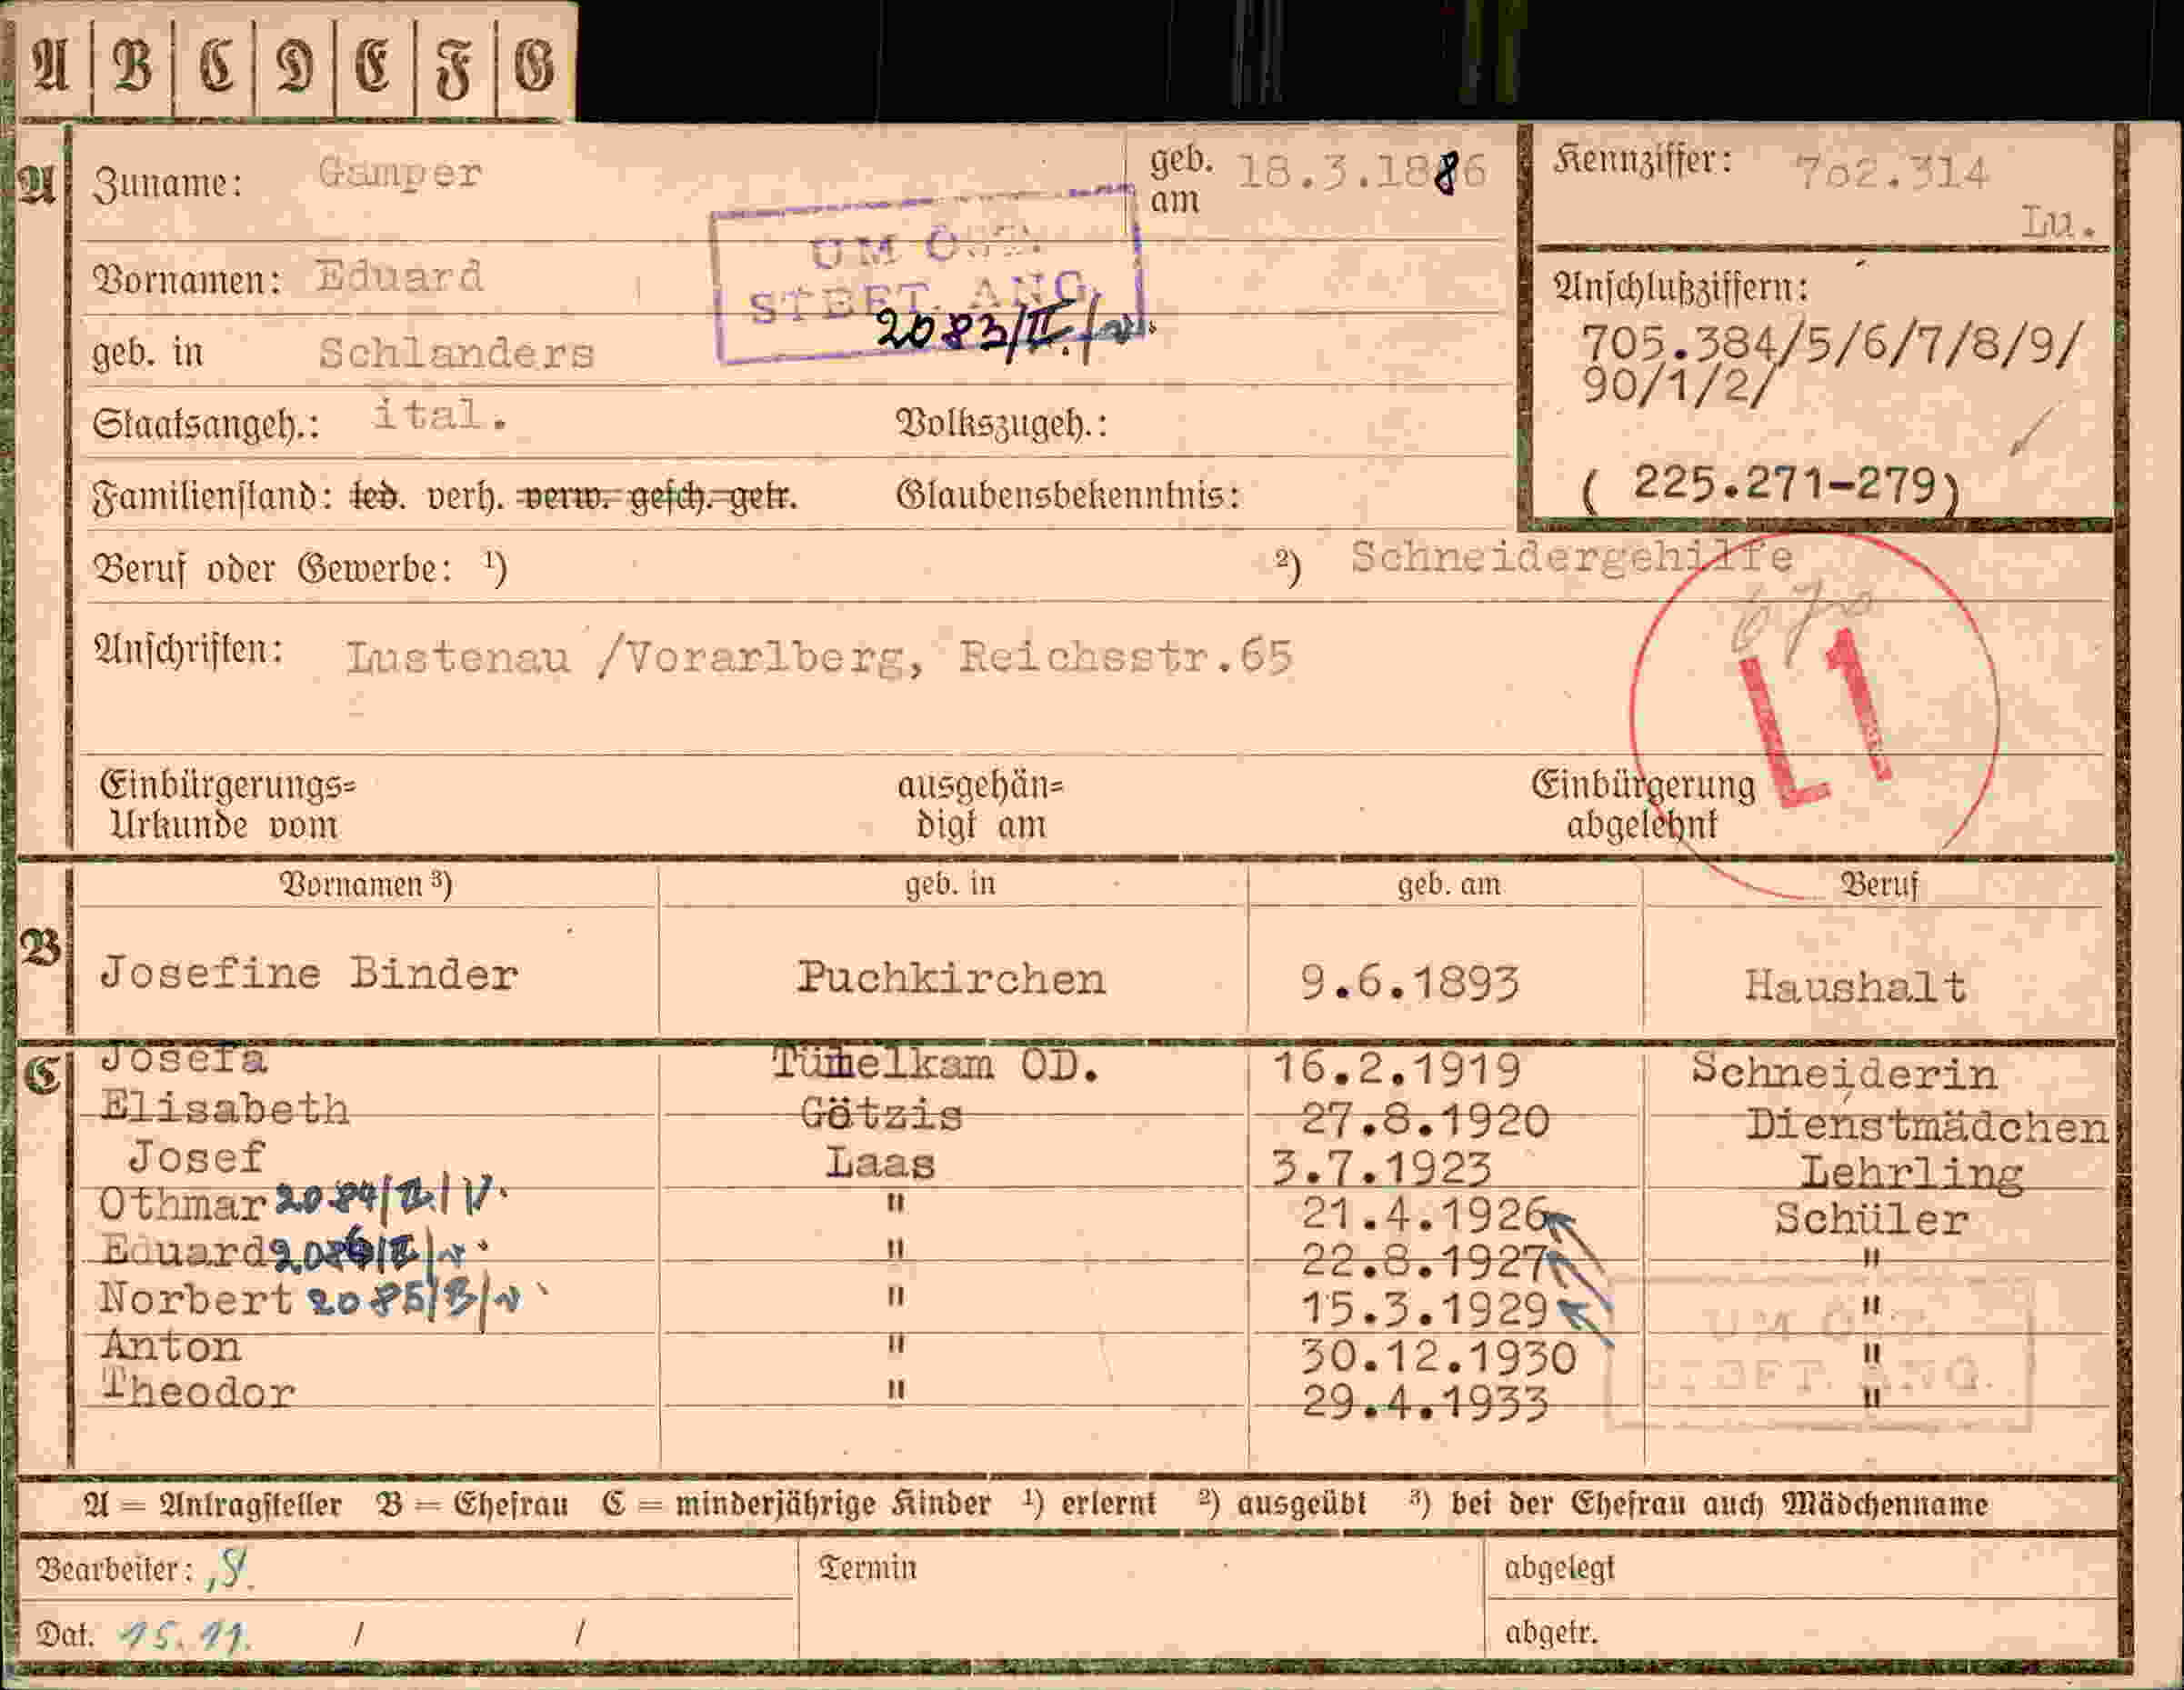 A B C D E F G
A Zuname: Gamper geb. am 18.3.1886
Kennziffer: 702.314
Lu.
UM Ö
STBFT. ANG.
2083/II./
Vornamen: Eduard
Anschlußziffern:
705.384/5/6/7/8/9/
90/1/2/
geb. in Schlanders
Staatsangeh.: ital. Volkszugeh.:
( 225.271-279)
Familienstand: led. verh. verw. gesch. getr. Glaubensbekenntnis:
Beruf oder Gewerbe: 1) 2) Schneidergehilfe
Anschriften: Lustenau /Vorarlberg, Reichsstr.65
L1
Einbürgerungs= ausgehän= Einbürgerung
Urkunde vom digt am abgelehnt
Vornamen 3) geb. in geb. am Beruf
B Josefine Binder Puchkirchen 9.6.1893 Haushalt
C Josefa Tümelkam OD. 16.2.1919 Schneiderin
Elisabeth Götzis 27.8.1920 Dienstmädchen
Josef Laas 3.7.1923 Lehrling
Othmar 2084/II/V. " 21.4.1926 Schüler
Eduard " 22.8.1927 "
Norbert " 15.3.1929 "
Anton " 30.12.1930 "
Theodor " 29.4.1933 "
UM ÖST.
STBFT. ANG.
A = Antragsteller B = Ehefrau C = minderjährige Kinder 1) erlernt 2) ausgeübt 3) bei der Ehefrau auch Mädchenname
Bearbeiter: S. Termin abgelegt
Dat. 15.11. / / abgetr.